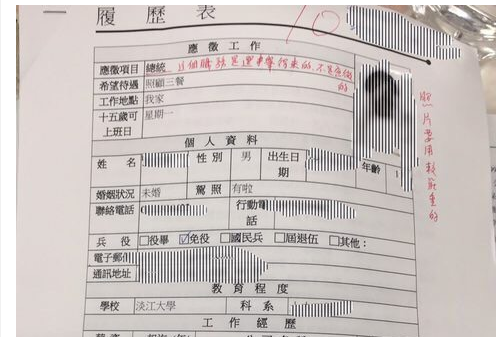 履歷表
10
應徵工作
應徵項目 總統 這個職務是選舉得來的,不是應徵的
希望待遇 照顧三餐
工作地點 我家
十五歲可上班日 星期一
個人資料
姓名 性別 男 出生日期 年齡 1
照片要用較莊重的
婚姻狀況 未婚 駕照 有啦
聯絡電話 行動電話
兵役 □役畢 ☑免役 □國民兵 □屆退伍 □其他:
電子郵
通訊地址
教育程度
學校 淡江大學 科系
工作經歷